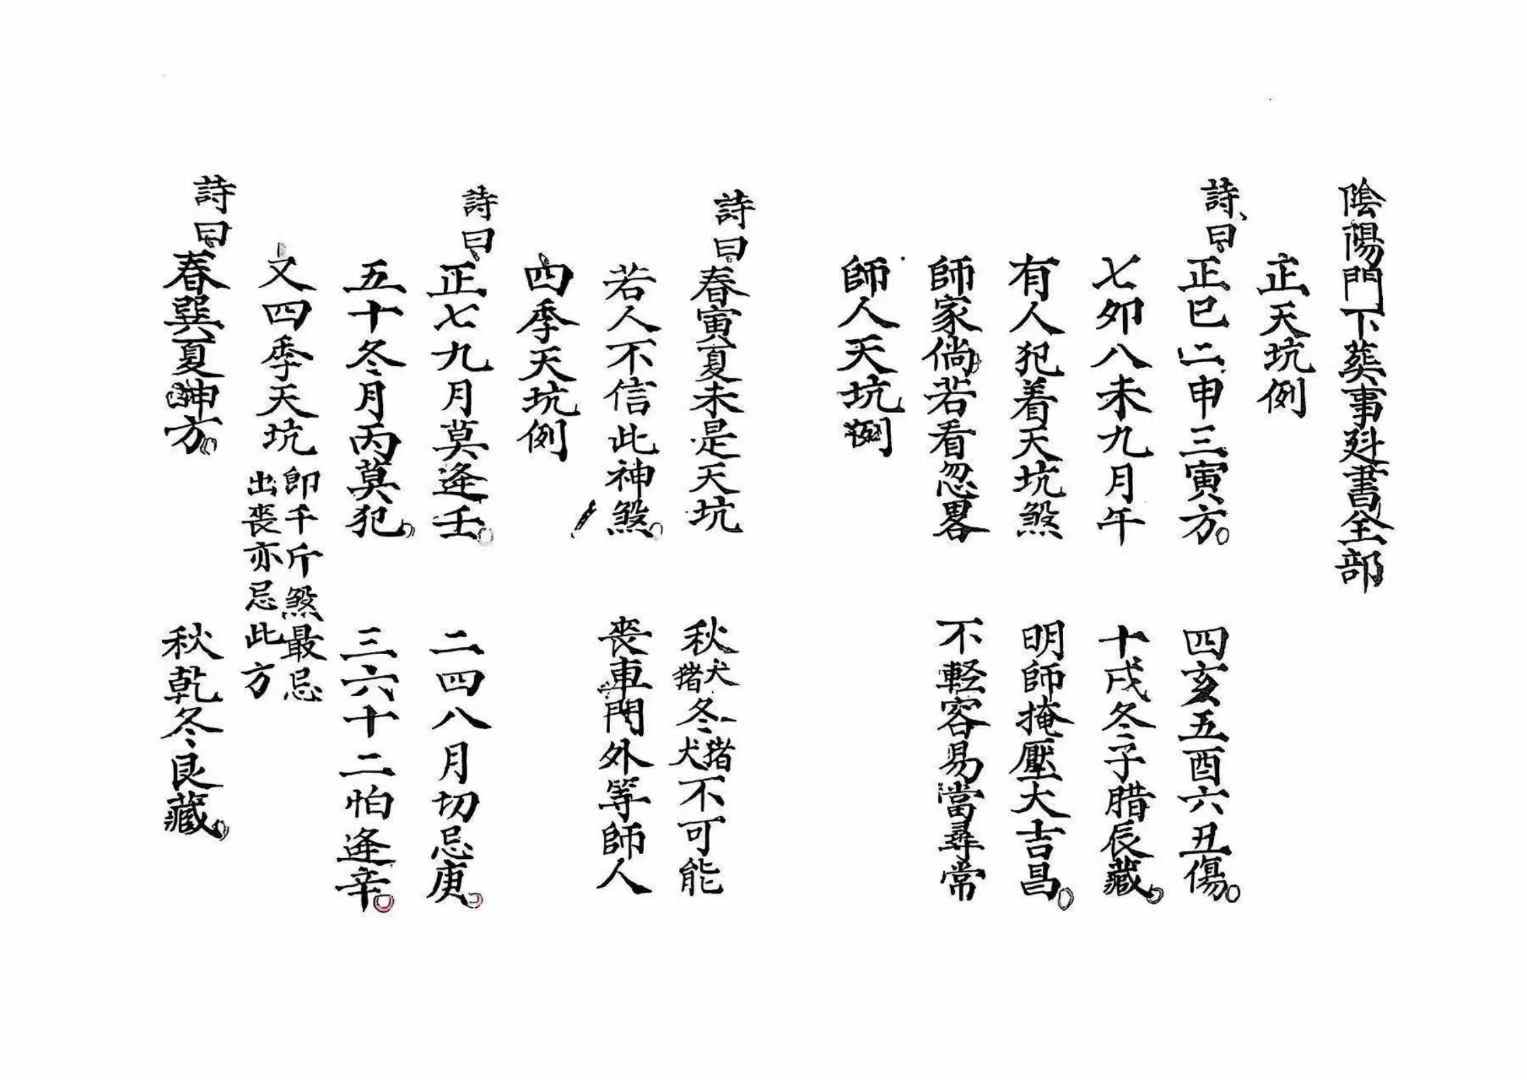 陰陽門下葬事尅書全部
正天坑例
詩曰
正巳二申三寅方。 四亥五酉六丑傷。
七卯八未九月午 十戌冬子腊辰藏。
有人犯着天坑煞 明師掩壓大吉昌。
師家倘若看忽畧 不輕容易當尋常
師人天坑例
詩曰
春寅夏未是天坑 秋犬猪冬猪犬不可能
若人不信此神煞。 丧車門外等師人
四季天坑例
詩曰
正七九月莫逢壬。 二四八月切忌庚。
五十冬月丙莫犯。 三六十二怕逢辛。
又四季天坑 即千斤煞最忌
出丧亦忌此方
詩曰
春巽夏坤方。 秋乾冬艮藏。